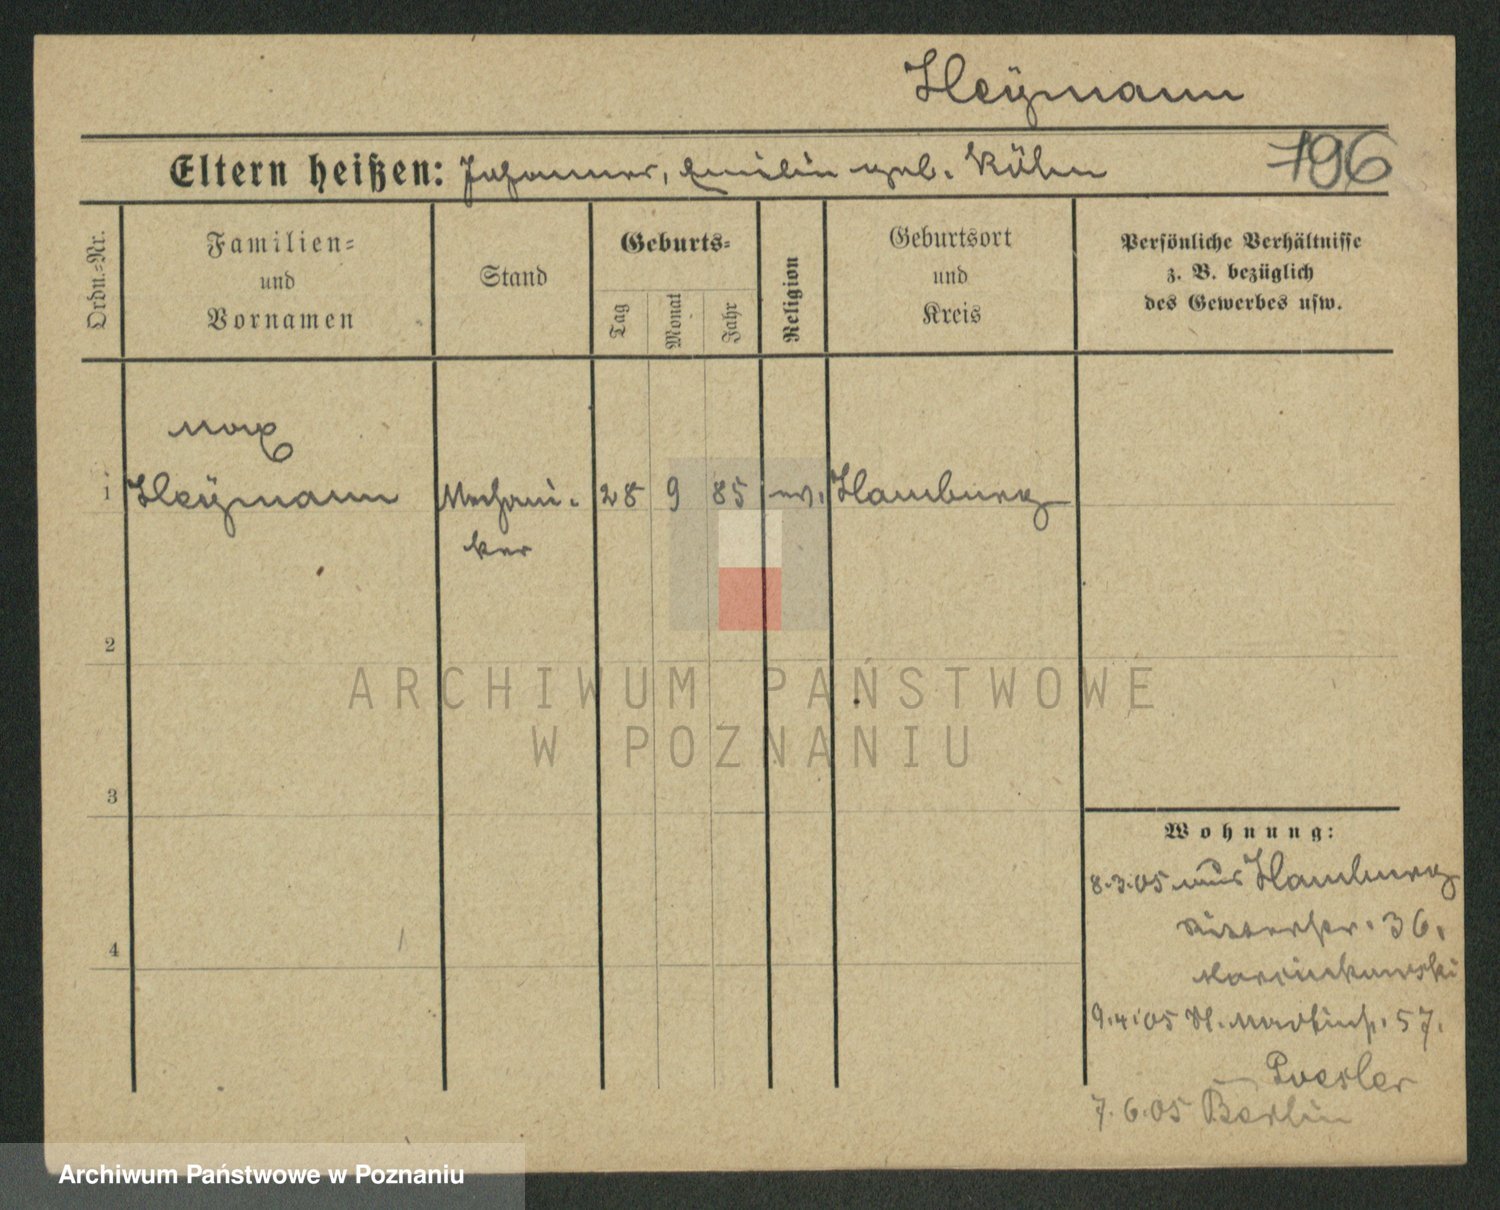 Heÿmann
Eltern heißen: Johannes, Emilie geb. Kühn
196
Ordn.=Nr.
Familien=
und
Vornamen
Stand
Geburts=
Tag
Monat
Jahr
Religion
Geburtsort
und
Kreis
Persönliche Verhältnisse
z. B. bezüglich
des Gewerbes usw.
Max
1 Heÿmann Mechani- 28 9 85 ev. Hamburg
ker
2
ARCHIWUM PAŃSTWOWE
W POZNANIU
3
Wohnung:
8.3.05 aus Hamburg
Ritterstr. 36.
Marcinkowski
4
9.4.05 St. Martinstr. 57.
7.6.05 Berlin
Archiwum Państwowe w Poznaniu